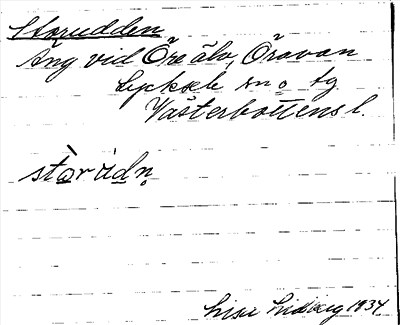 Storudden
Äng vid Öre älv, Öravan
Lycksele sn o. tg
Västerbottens l.
stòrúdn̥
Lisa Lidberg 1934.